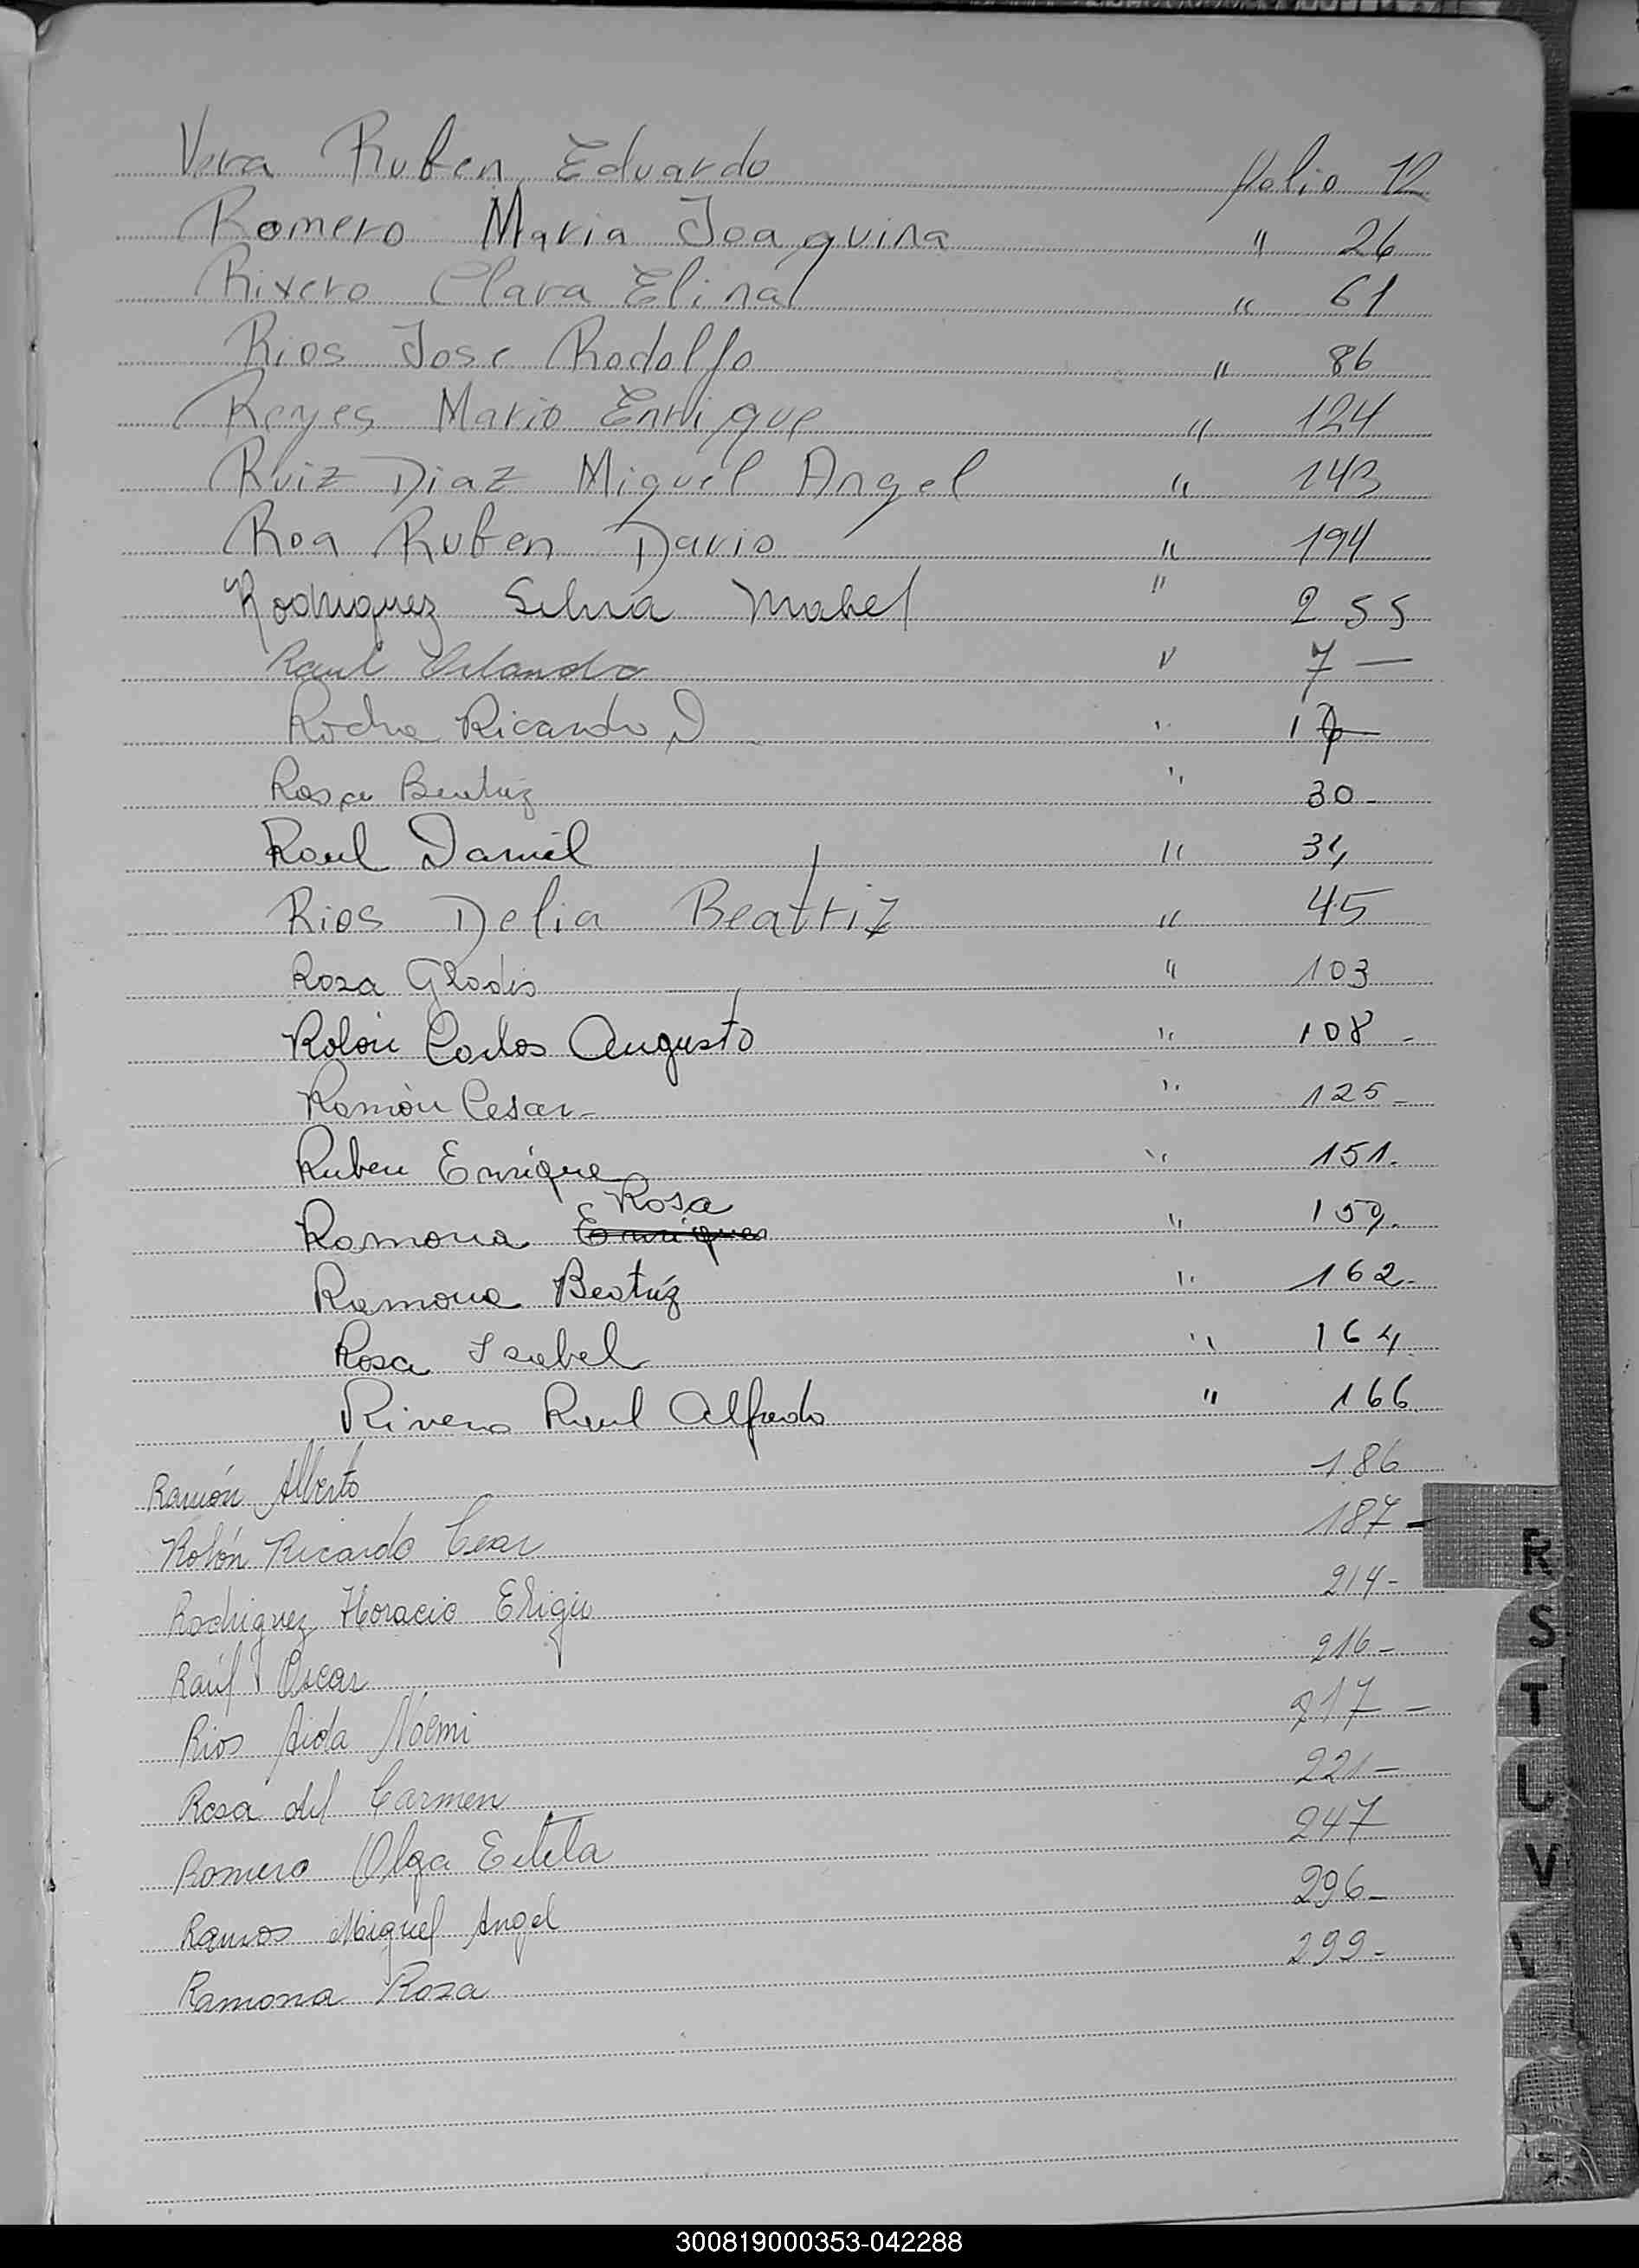 Vera Ruben Eduardo folio 12
Romero Maria Joaquina " 26
Rivero Clara Elina " 61
Rios Jose Rodolfo " 86
Reyes Mario Enrique " 124
Ruiz Diaz Miguel Angel " 143
Roa Ruben Dario " 194
Rodriguez Silvia Mabel " 255
Raul Orlando " 7 —
Rocha Ricardo D " 17
Rosa Beatriz " 30-
Raul Daniel " 34
Rios Delia Beatriz " 45
Rosa Glodis " 103
Rolón Carlos Augusto " 108 -
Ramón Cesar- " 125-
Ruben Enrique " 151.
Rosa
Ramona Enriques " 159.
Ramona Beatriz " 162-
Rosa Isabel " 164
Rivero Raul Alfredo " 166.
Ramón Alberto 186
Rolón Ricardo Cesar 187 -
Rodriguez Horacio Eligio 214-
Raúl Oscar 216-
Rios Aida Noemi 217 -
Rosa del Carmen 221-
Romero Olga Estela 247
Ramos Miguel Angel 296-
Ramona Rosa 299-
R
S
T
U
V
300819000353-042288